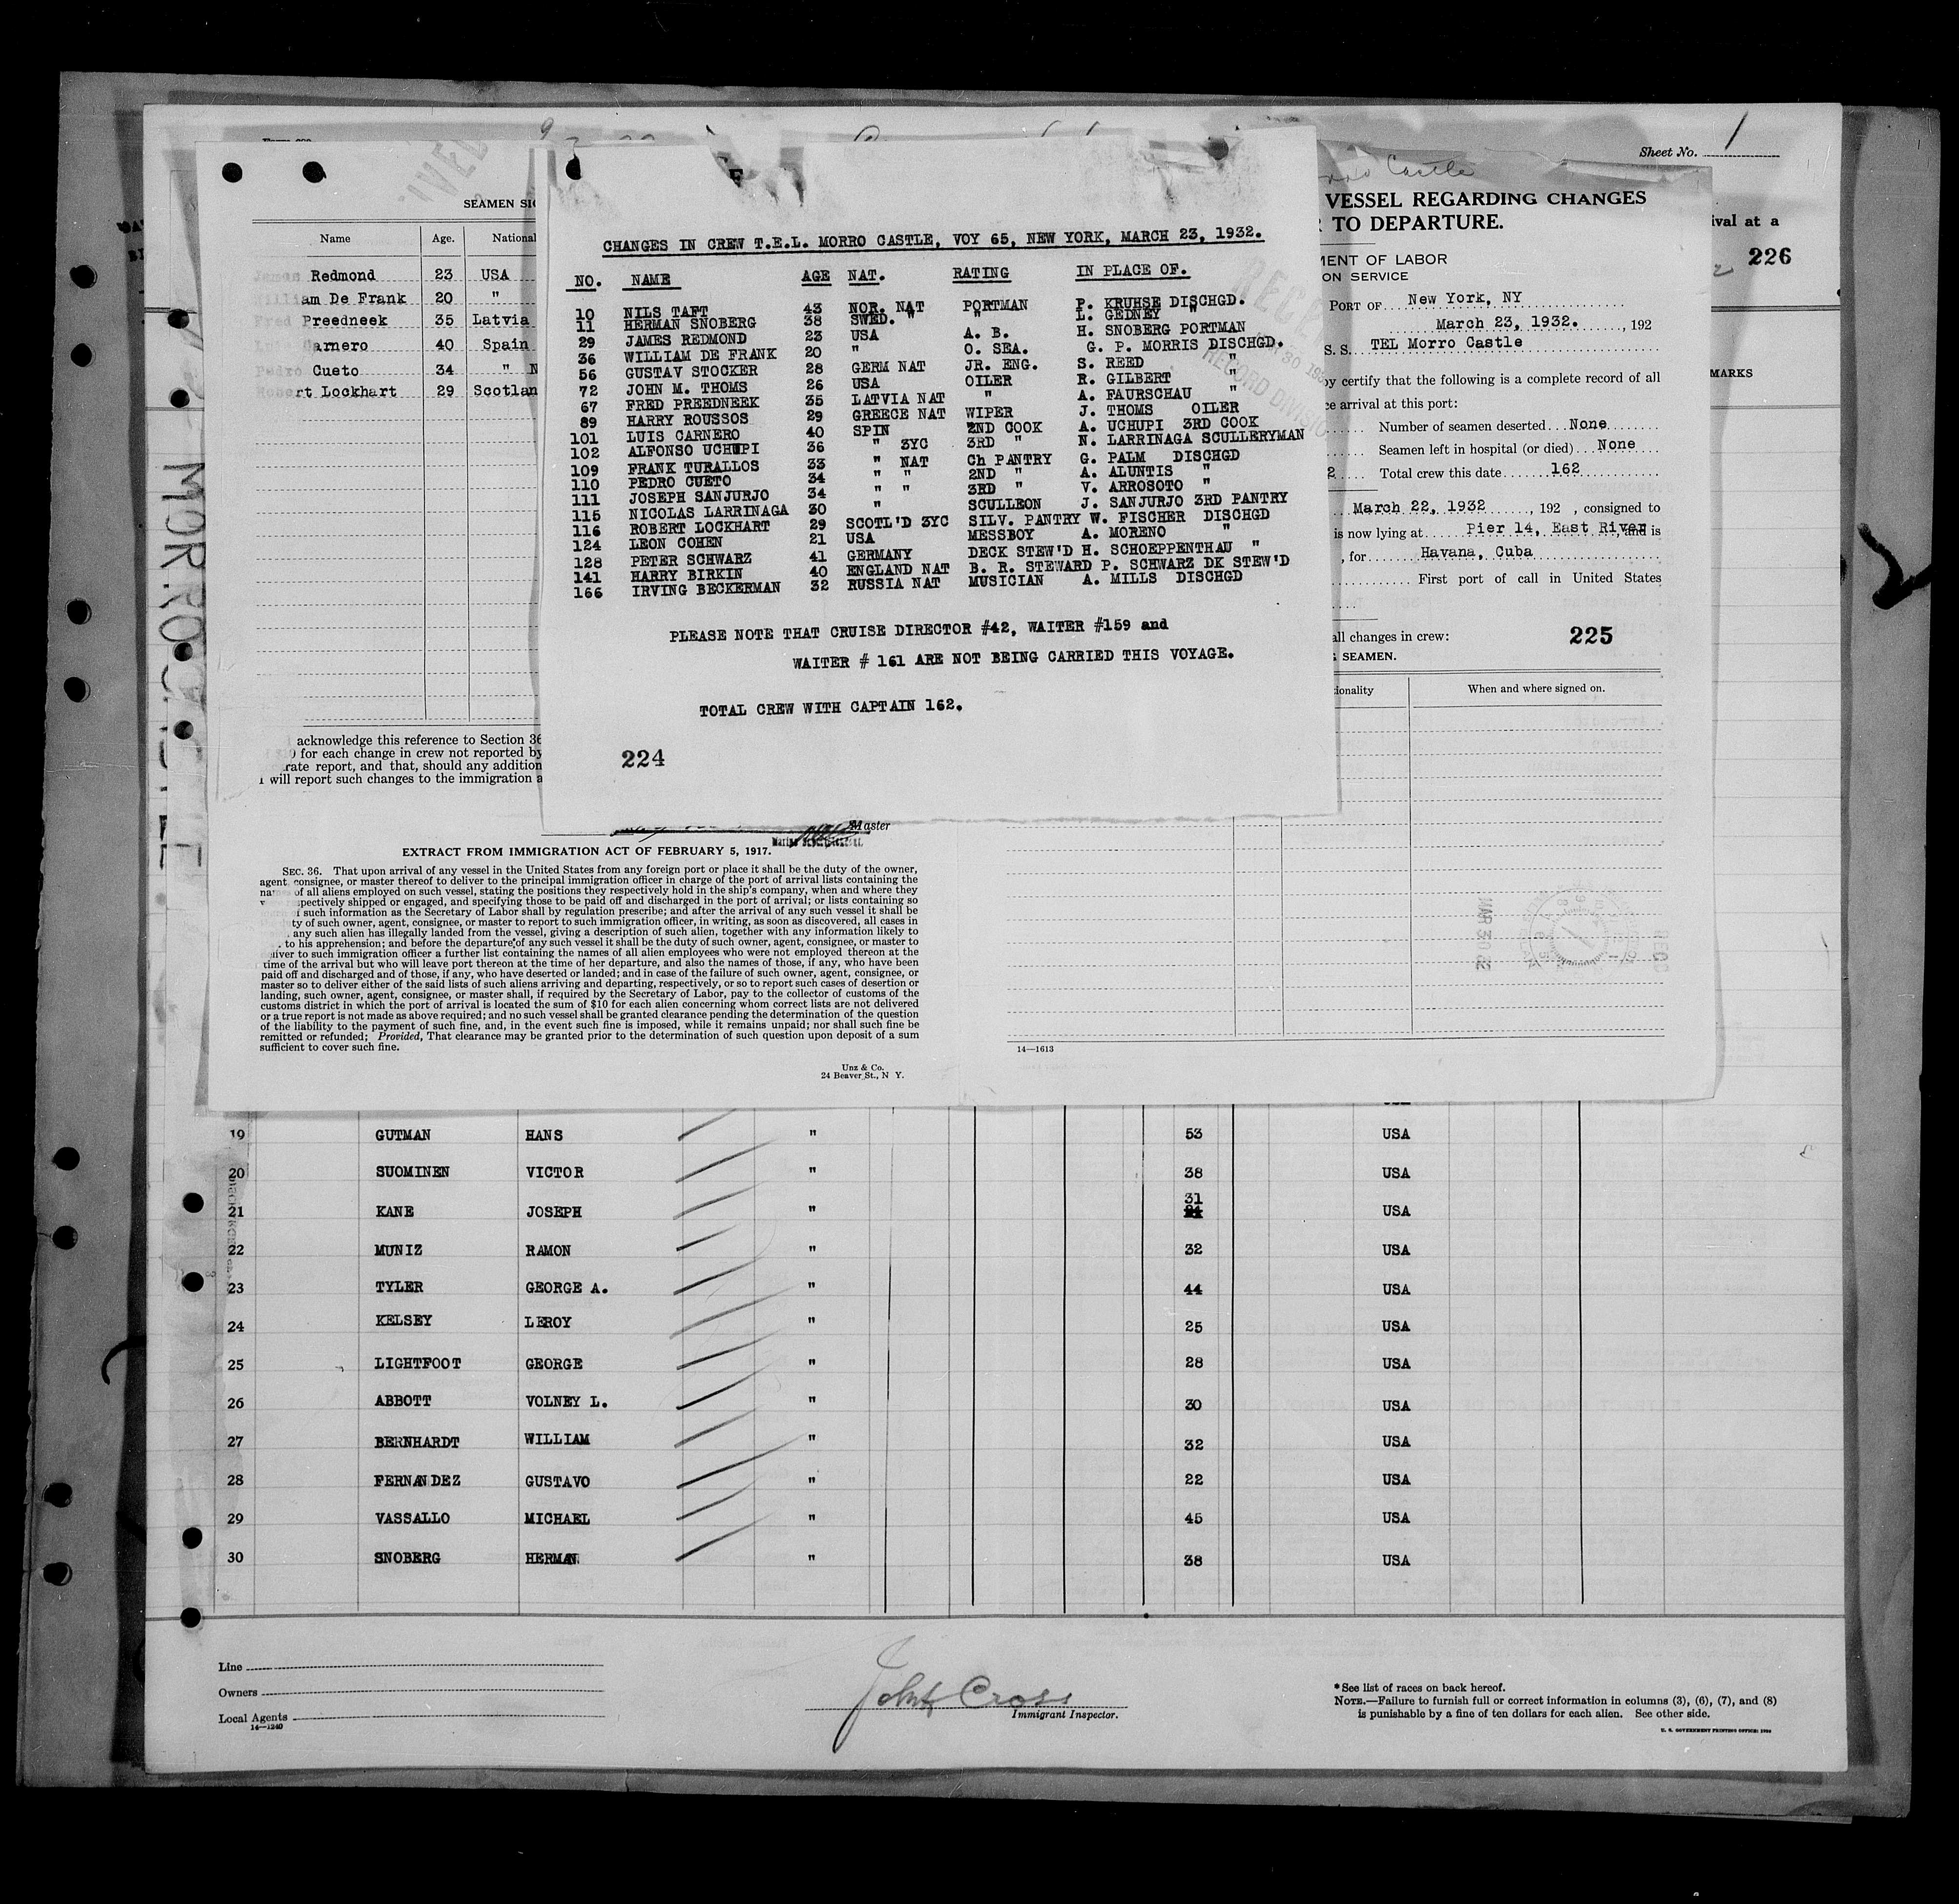 Sheet No. 1
Castle
SEAMEN
Name Age. National
Redmond 23 USA
am De Frank 20 "
Preedneek 35 Latvia
Carnero 40 Spain
Cueto 34 " N
rt Lockhart 29 Scotlan
acknowledge this reference to Section 36
for each change in crew not reported by
rate report, and that, should any addition
I will report such changes to the immigration a
Master
CHANGES IN CREW T.E.L. MORRO CASTLE, VOY 65, NEW YORK, MARCH 23, 1932.
NO. NAME AGE NAT. RATING IN PLACE OF.
10 NILS TAFT 43 NOR. NAT PORTMAN P. KRUHSE DISCHGD.
11 HERMAN SNOBERG 38 SWED. " " L. GEDNEY "
29 JAMES REDMOND 23 USA A. B. H. SNOBERG PORTMAN
36 WILLIAM DE FRANK 20 " O. SEA. G. P. MORRIS DISCHGD.
56 GUSTAV STOCKER 28 GERM NAT JR. ENG. S. REED "
72 JOHN M. THOMS 26 USA OILER R. GILBERT "
67 FRED PREEDNEEK 35 LATVIA NAT " A. FAURSCHAU "
89 HARRY ROUSSOS 29 GREECE NAT WIPER J. THOMS OILER
101 LUIS CARNERO 40 SPIN 2ND COOK A. UCHUPI 3RD COOK
102 ALFONSO UCHUPI 36 " 3YC 3RD " N. LARRINAGA SCULLERYMAN
109 FRANK TURALLOS 33 " NAT Ch PANTRY G. PALM DISCHGD
110 PEDRO CUETO 34 " " 2ND " A. ALUNTIS "
111 JOSEPH SANJURJO 34 " " 3RD " V. ARROSOTO "
115 NICOLAS LARRINAGA 30 " SCULLEON J. SANJURJO 3RD PANTRY
116 ROBERT LOCKHART 29 SCOTL'D 3YC SILV. PANTRY W. FISCHER DISCHGD
124 LEON COHEN 21 USA MESSBOY A. MORENO "
128 PETER SCHWARZ 41 GERMANY DECK STEW'D H. SCHOEPPENTHAU "
141 HARRY BIRKIN 40 ENGLAND NAT B. R. STEWARD P. SCHWARZ DK STEW'D
166 IRVING BECKERMAN 32 RUSSIA NAT MUSICIAN A. MILLS DISCHGD
PLEASE NOTE THAT CRUISE DIRECTOR #42, WAITER #159 and
WAITER # 161 ARE NOT BEING CARRIED THIS VOYAGE.
TOTAL CREW WITH CAPTAIN 162.
224
RECORD DIVISION
VESSEL REGARDING CHANGES
TO DEPARTURE.
MENT OF LABOR
ON SERVICE
PORT OF New York, NY
March 23, 1932. , 192
S.S. TEL Morro Castle
by certify that the following is a complete record of all
ce arrival at this port:
Number of seamen deserted None
Seamen left in hospital (or died) None
2 Total crew this date 162
March 22, 1932 , 192 , consigned to
is now lying at Pier 14, East River, and is
, for Havana, Cuba
First port of call in United States
all changes in crew:
225
SEAMEN.
ionality When and where signed on.
14—1613
MAR 30 32
ival at a
226
MARKS
MORRO CASTLE
EXTRACT FROM IMMIGRATION ACT OF FEBRUARY 5, 1917.
SEC. 36. That upon arrival of any vessel in the United States from any foreign port or place it shall be the duty of the owner,
agent, consignee, or master thereof to deliver to the principal immigration officer in charge of the port of arrival lists containing the
names of all aliens employed on such vessel, stating the positions they respectively hold in the ship's company, when and where they
spectively shipped or engaged, and specifying those to be paid off and discharged in the port of arrival; or lists containing so
f such information as the Secretary of Labor shall by regulation prescribe; and after the arrival of any such vessel it shall be
ty of such owner, agent, consignee, or master to report to such immigration officer, in writing, as soon as discovered, all cases in
any such alien has illegally landed from the vessel, giving a description of such alien, together with any information likely to
to his apprehension; and before the departure of any such vessel it shall be the duty of such owner, agent, consignee, or master to
liver to such immigration officer a further list containing the names of all alien employees who were not employed thereon at the
time of the arrival but who will leave port thereon at the time of her departure, and also the names of those, if any, who have been
paid off and discharged and of those, if any, who have deserted or landed; and in case of the failure of such owner, agent, consignee, or
master so to deliver either of the said lists of such aliens arriving and departing, respectively, or so to report such cases of desertion or
landing, such owner, agent, consignee, or master shall, if required by the Secretary of Labor, pay to the collector of customs of the
customs district in which the port of arrival is located the sum of $10 for each alien concerning whom correct lists are not delivered
or a true report is not made as above required; and no such vessel shall be granted clearance pending the determination of the question
of the liability to the payment of such fine, and, in the event such fine is imposed, while it remains unpaid; nor shall such fine be
remitted or refunded; Provided, That clearance may be granted prior to the determination of such question upon deposit of a sum
sufficient to cover such fine.
Unz & Co.
24 Beaver St., N Y.
19 GUTMAN HANS " 53 USA
20 SUOMINEN VICTOR " 38 USA
21 KANE JOSEPH " 31 USA
22 MUNIZ RAMON " 32 USA
23 TYLER GEORGE A. " 44 USA
24 KELSEY LEROY " 25 USA
25 LIGHTFOOT GEORGE " 28 USA
26 ABBOTT VOLNEY L. " 30 USA
27 BERNHARDT WILLIAM " 32 USA
28 FERNANDEZ GUSTAVO " 22 USA
29 VASSALLO MICHAEL " 45 USA
30 SNOBERG HERMAN " 38 USA
Line
Owners
Local Agents
14—1240
John Cross
Immigrant Inspector.
*See list of races on back hereof.
NOTE.—Failure to furnish full or correct information in columns (3), (6), (7), and (8)
is punishable by a fine of ten dollars for each alien. See other side.
U. S. GOVERNMENT PRINTING OFFICE: